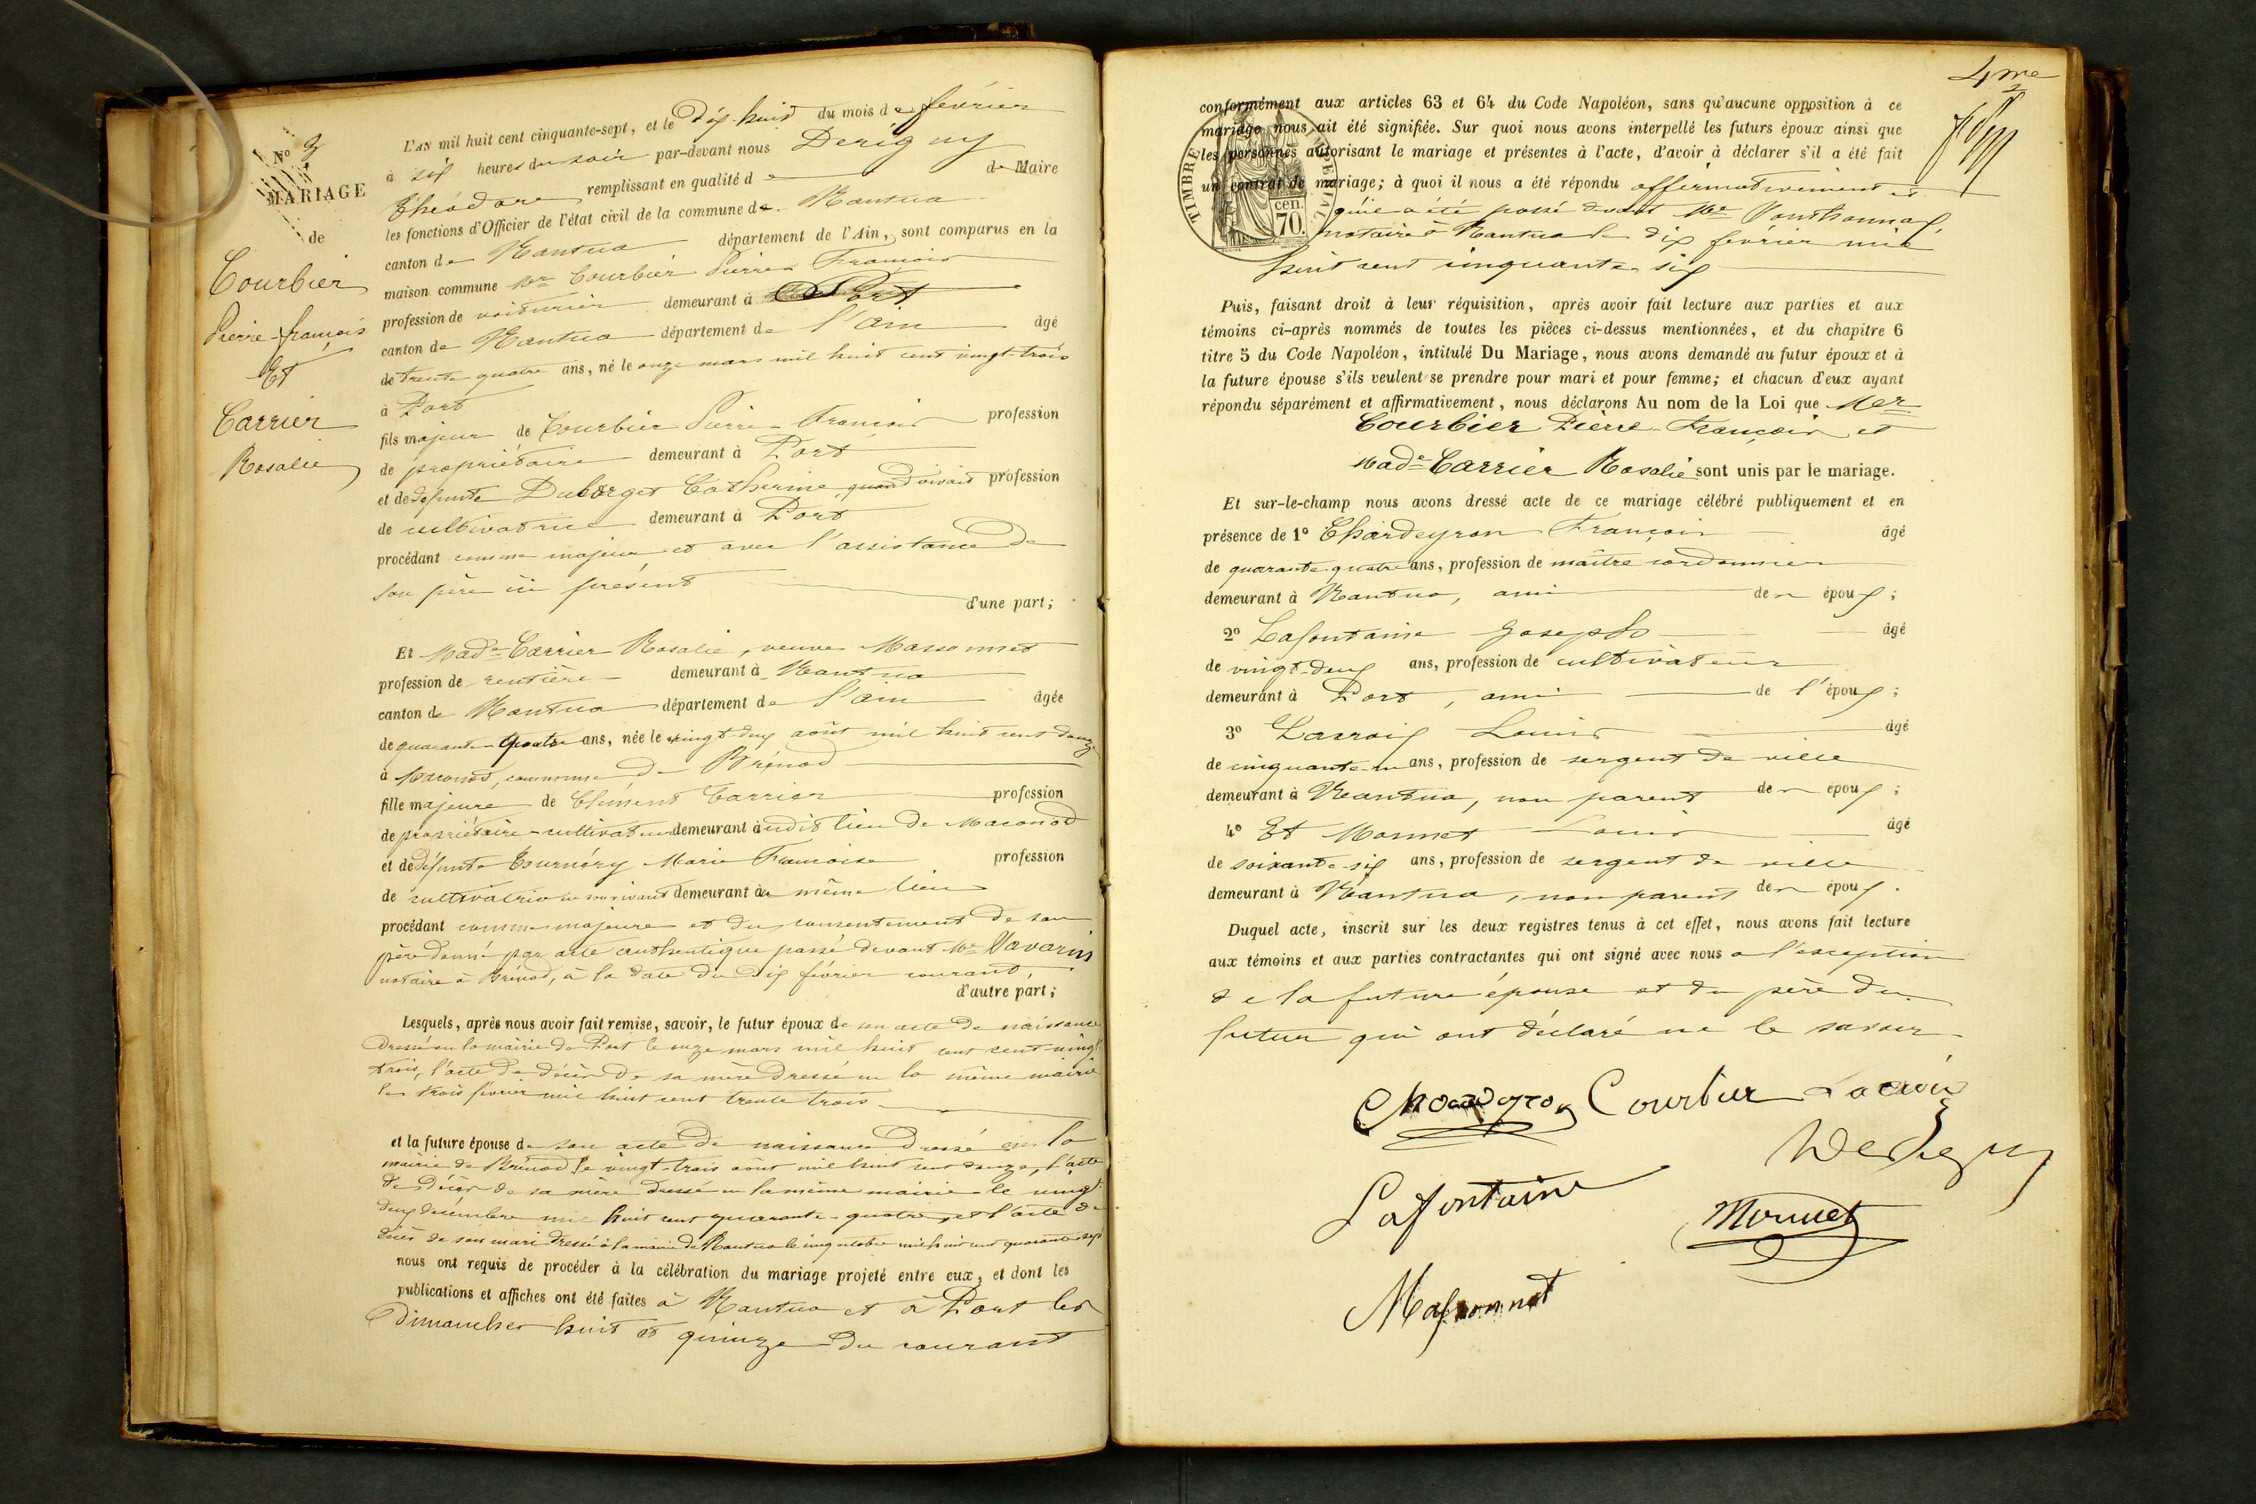 L'AN mil huit cent cinquante-sept, et le dix-huit du mois de février
à six heures du soir par-devant nous Derigny
Théodore remplissant en qualité de de Maire
les fonctions d'Officier de l'état civil de la commune de Nantua
canton de Nantua département de l'Ain, sont comparus en la
maison commune Mr Courbier Pierre François
profession de voiturier demeurant à Port
canton de Nantua département de l'Ain âgé
de trente quatre ans, né le onze mars mil huit cent vingt-trois
à Port
fils majeur de Courbier Pierre-François profession
de propriétaire demeurant à Port
et de défunte Duborget Catherine quand vivait profession
de cultivatrice demeurant à Port
procédant comme majeur et avec l'assistance de
son père ici présent
d'une part;
Et Made Carrier Rosalie, veuve Massonnet
profession de rentière demeurant à Nantua
canton de Nantua département de l'Ain âgée
de quarante-quatre ans, née le vingt-deux août mil huit cent douze
à Maconod, commune de Brénod
fille majeure de Clément Carrier profession
de propriétaire-cultivateur demeurant audit lieu de Maconod
et de défunte Marie Françoise profession
de cultivatrice en son vivant demeurant au même lieu
procédant comme majeure et du consentement de son
père donné par acte authentique passé devant Me Navarin
notaire à Brénod, à la date du dix février courant,
d'autre part;
Lesquels, après nous avoir fait remise, savoir, le futur époux de son acte de naissance
dressé en la mairie de Port le onze mars mil huit cent vingt
trois, l'acte de décès de sa mère dressé en la même mairie
le trois février mil huit cent trente trois
et la future épouse de son acte de naissance dressé en la
mairie de Brénod le vingt-trois août mil huit cent douze, l'acte
de décès de sa mère dressé en la même mairie le vingt
deux décembre mil huit cent quarante-quatre, et l'acte de
décès de son mari dressé à la mairie de Nantua le cinq octobre mil huit cent quarante sept
nous ont requis de procéder à la célébration du mariage projeté entre eux, et dont les
publications et affiches ont été faites à Nantua et à Port les
dimanches huit et quinze du courant
No 9
MARIAGE
de
Courbier
Pierre-françois
Et
Carrier
Rosalie
4me
conformément aux articles 63 et 64 du Code Napoléon, sans qu'aucune opposition à ce
mariage nous ait été signifiée. Sur quoi nous avons interpellé les futurs époux ainsi que
les personnes autorisant le mariage et présentes à l'acte, d'avoir à déclarer s'il a été fait
un contrat de mariage; à quoi il nous a été répondu affirmativement et
qu'il a été passé devant Me
notaire à Nantua le dix février mil
huit cent cinquante-six
TIMBRE IMPÉRIAL
cen.
70.
Puis, faisant droit à leur réquisition, après avoir fait lecture aux parties et aux
témoins ci-après nommés de toutes les pièces ci-dessus mentionnées, et du chapitre 6
titre 5 du Code Napoléon, intitulé Du Mariage, nous avons demandé au futur époux et à
la future épouse s'ils veulent se prendre pour mari et pour femme; et chacun d'eux ayant
répondu séparément et affirmativement, nous déclarons Au nom de la Loi que Mer
Courbier Pierre-François et
Made Carrier Rosalie sont unis par le mariage.
Et sur-le-champ nous avons dressé acte de ce mariage célébré publiquement et en
présence de 1° Chardeyron François âgé
de quarante-quatre ans, profession de maître cordonnier
demeurant à Nantua, ami des époux;
2° Lafontaine Joseph âgé
de vingt-deux ans, profession de cultivateur
demeurant à Port, ami de l'époux;
3° Lacroix Louis âgé
de cinquante-un ans, profession de sergent de ville
demeurant à Nantua, non parent des époux;
4° Et Monnet Louis âgé
de soixante-six ans, profession de sergent de ville
demeurant à Nantua, non parent des époux.
Duquel acte, inscrit sur les deux registres tenus à cet effet, nous avons fait lecture
aux témoins et aux parties contractantes qui ont signé avec nous a l'exception
de la future épouse et du père du
futur qui ont déclaré ne le savoir
Chardeyron Courbier Lacroix
Derigny
Lafontaine
Monnet
Massonnet